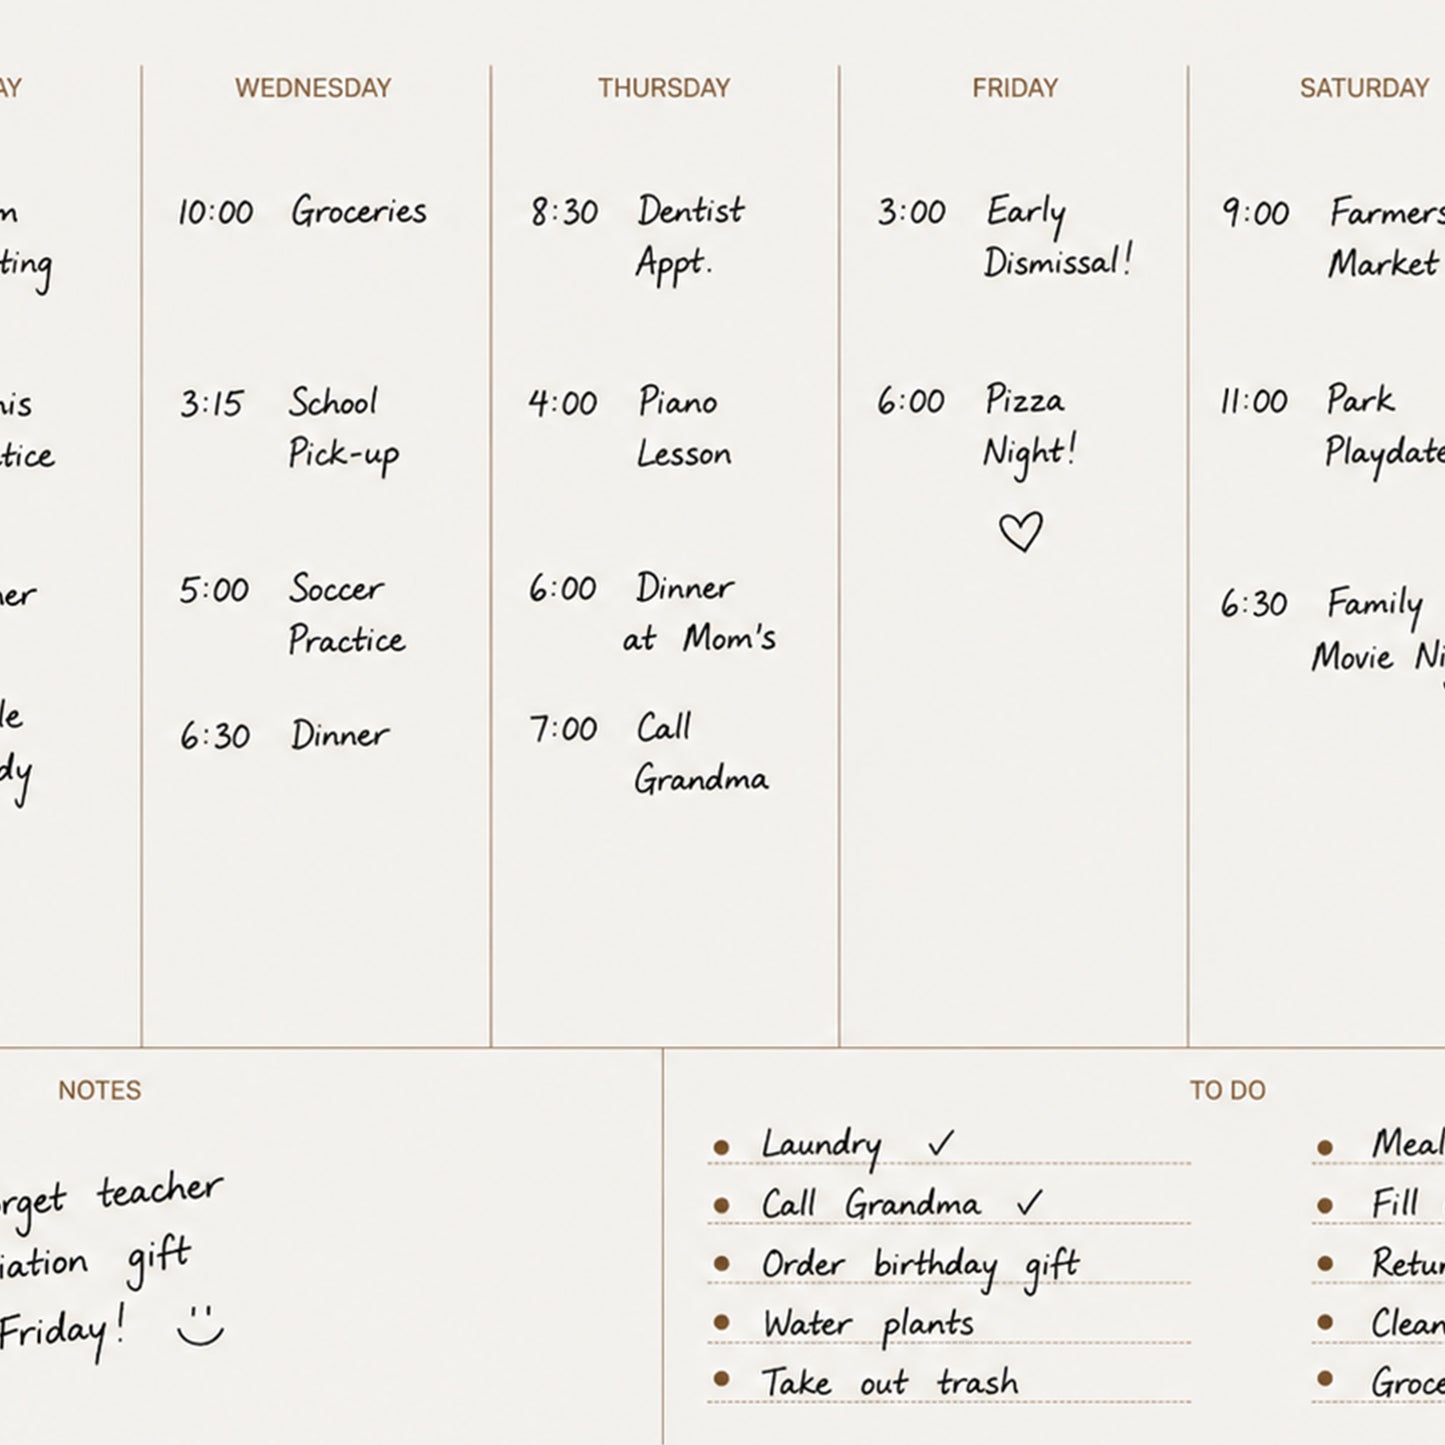 WEDNESDAY
10:00 Groceries
3:15 School
Pick-up
5:00 Soccer
Practice
6:30 Dinner
THURSDAY
8:30 Dentist
Appt.
4:00 Piano
Lesson
6:00 Dinner
at Mom's
7:00 Call
Grandma
FRIDAY
3:00 Early
Dismissal!
6:00 Pizza
Night!
SATURDAY
9:00 Farmers
Market
11:00 Park
Playdate
6:30 Family
Movie
NOTES
teacher
gift
Friday!
TO DO
Laundry ✓
Call Grandma ✓
Order birthday gift
Water plants
Take out trash
Meal
Fill
Clean